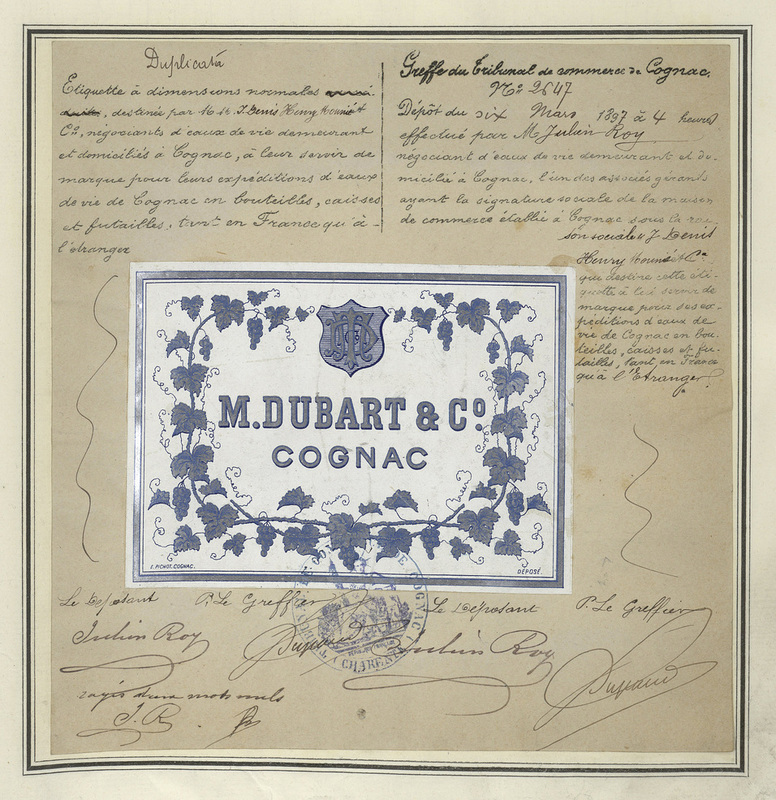 Duplicata
Etiquette à dimensions normales
destinée par M.M. J. Denis Henry Mounié &
Cº, négociants d'eaux de vie demeurant
et domiciliés à Cognac, à leur servir de
marque pour leurs expéditions d'eaux
de vie de Cognac en bouteilles, caisses
et futailles, tant en France qu'à
l'étranger
Greffe du Tribunal de commerce de Cognac.
Nº 2647
Dépôt du six Mars 1897 à 4 heures
effectué par M. Julien Roy
négociant d'eaux de vie demeurant et do-
micilié à Cognac, l'un des associés gérants
ayant la signature sociale de la maison
de commerce établie à Cognac sous la rai-
son sociale "J. Denis
Henry Mounié & Cie
qui destine cette éti-
quette à lui servir de
marque pour ses ex-
péditions d'eaux de
vie de Cognac en bou-
teilles, caisses et fu-
tailles, tant en France
qu'à l'Etranger
M. DUBART & Cº
COGNAC
E. PICHOT, COGNAC.
DÉPOSÉ.
Le Déposant P. Le Greffier Le Déposant P. Le Greffier
Julien Roy Julien Roy
rayés deux mots nuls
J. R.
COGNAC
CHARENTE